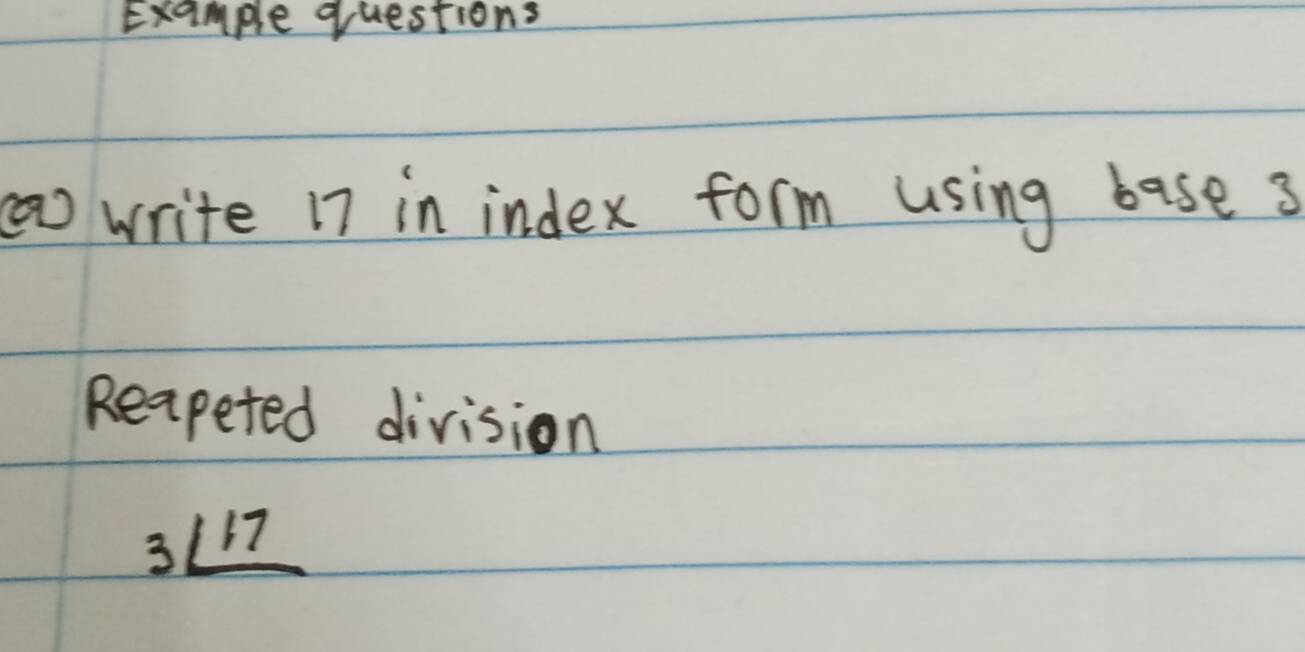 Example questions
(a) Write 17 in index form using base 3
Reapeted division
3 17